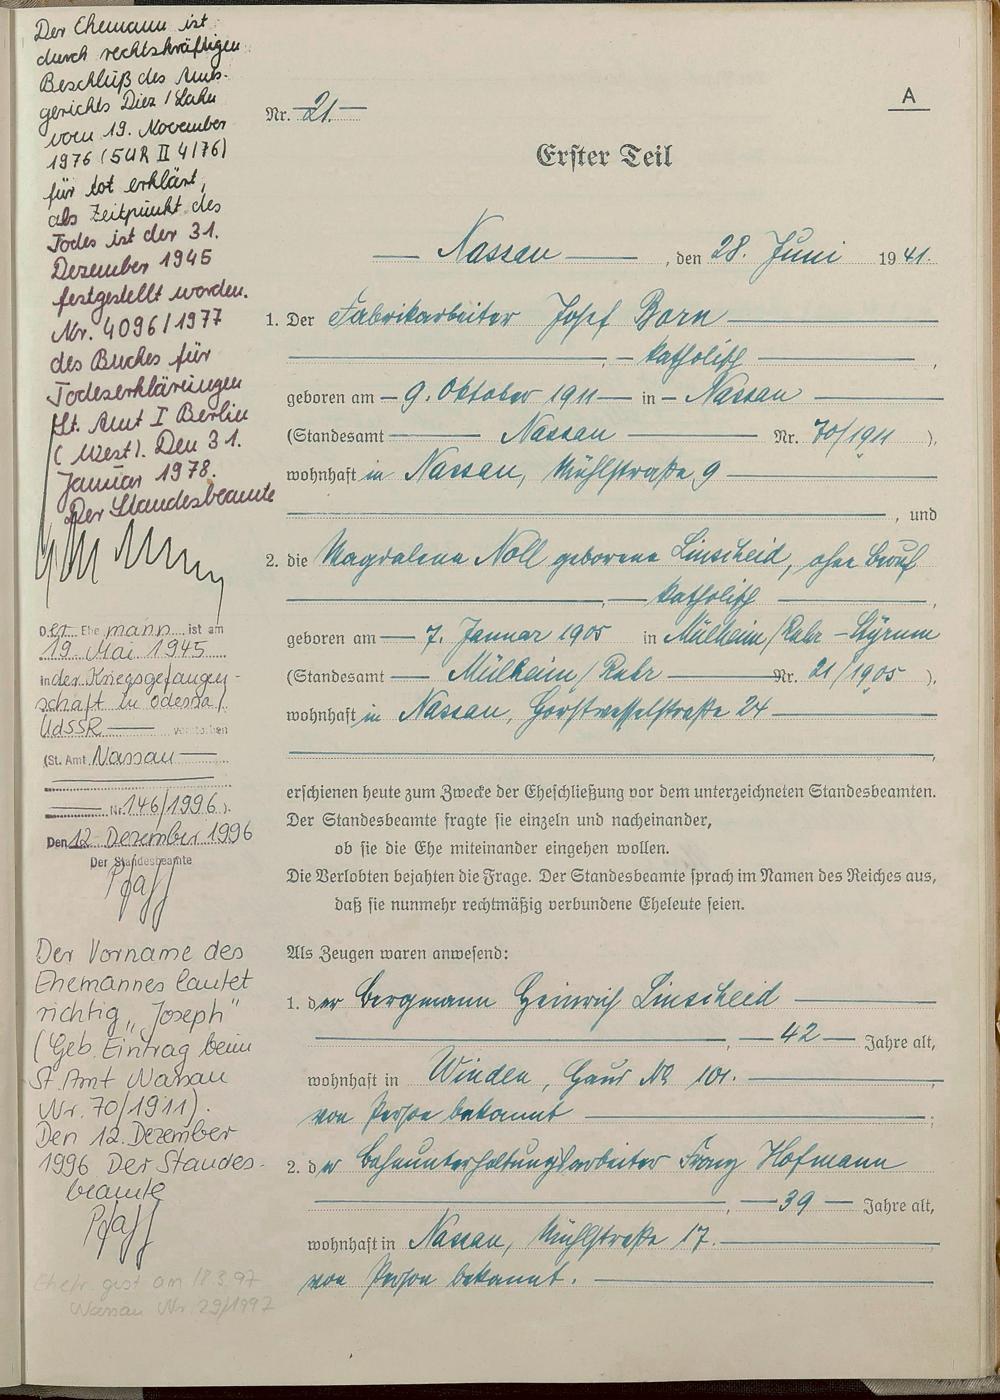 Der Ehemann ist
durch rechtskräftigen
Beschluß des Amts-
gerichts Diez / Lahn
vom 19. November
1976 (5 UR II 4/76)
für tot erklärt,
als Zeitpunkt des
Todes ist der 31.
Dezember 1945
festgestellt worden.
Nr. 4096/1977
des Buches für
Todeserklärungen
St. Amt I Berlin
(West). Den 31.
Januar 1978.
Der Standesbeamte
Der Ehemann ist am
19. Mai 1945
in der Kriegsgefangen-
schaft in Odessa/
UdSSR — verstorben
(St. Amt Nassau —
— Nr. 146/1996).
Den 12. Dezember 1996
Der Standesbeamte
Pfaff
Der Vorname des
Ehemannes lautet
richtig „Joseph"
(Geb. Eintrag beim
St. Amt Nassau
Nr. 70/1911).
Den 12. Dezember
1996 Der Standes-
beamte
Pfaff
Ehefr. gest. am 18.3.97
Nassau Nr. 29/1997
A
Nr. — 21. —
Erster Teil
— Nassau —, den 28. Juni 1941.
1. Der Fabrikarbeiter Josef Born —
—, — katholisch —,
geboren am — 9. Oktober 1911 — in — Nassau —
(Standesamt — Nassau — Nr. 70/1911),
wohnhaft in Nassau, Mühlstraße 9 —
—, und
2. die Magdalena Noll geborene Linscheid, ohne Beruf
—, — katholisch —,
geboren am — 7. Januar 1905 in Mülheim/Ruhr – Styrum
(Standesamt — Mülheim/Ruhr — Nr. 21/1905),
wohnhaft in Nassau, Horstwesselstraße 24 —
—,
erschienen heute zum Zwecke der Eheschließung vor dem unterzeichneten Standesbeamten.
Der Standesbeamte fragte sie einzeln und nacheinander,
ob sie die Ehe miteinander eingehen wollen.
Die Verlobten bejahten die Frage. Der Standesbeamte sprach im Namen des Reiches aus,
daß sie nunmehr rechtmäßig verbundene Eheleute seien.
Als Zeugen waren anwesend:
1. der Bergmann Heinrich Linscheid —
—, — 42 — Jahre alt,
wohnhaft in Winden, Haus No 101. —
von Person bekannt —;
2. der Bahnunterhaltungsarbeiter Franz Hofmann
—, — 39 — Jahre alt,
wohnhaft in Nassau, Mühlstraße 17. —
von Person bekannt. —